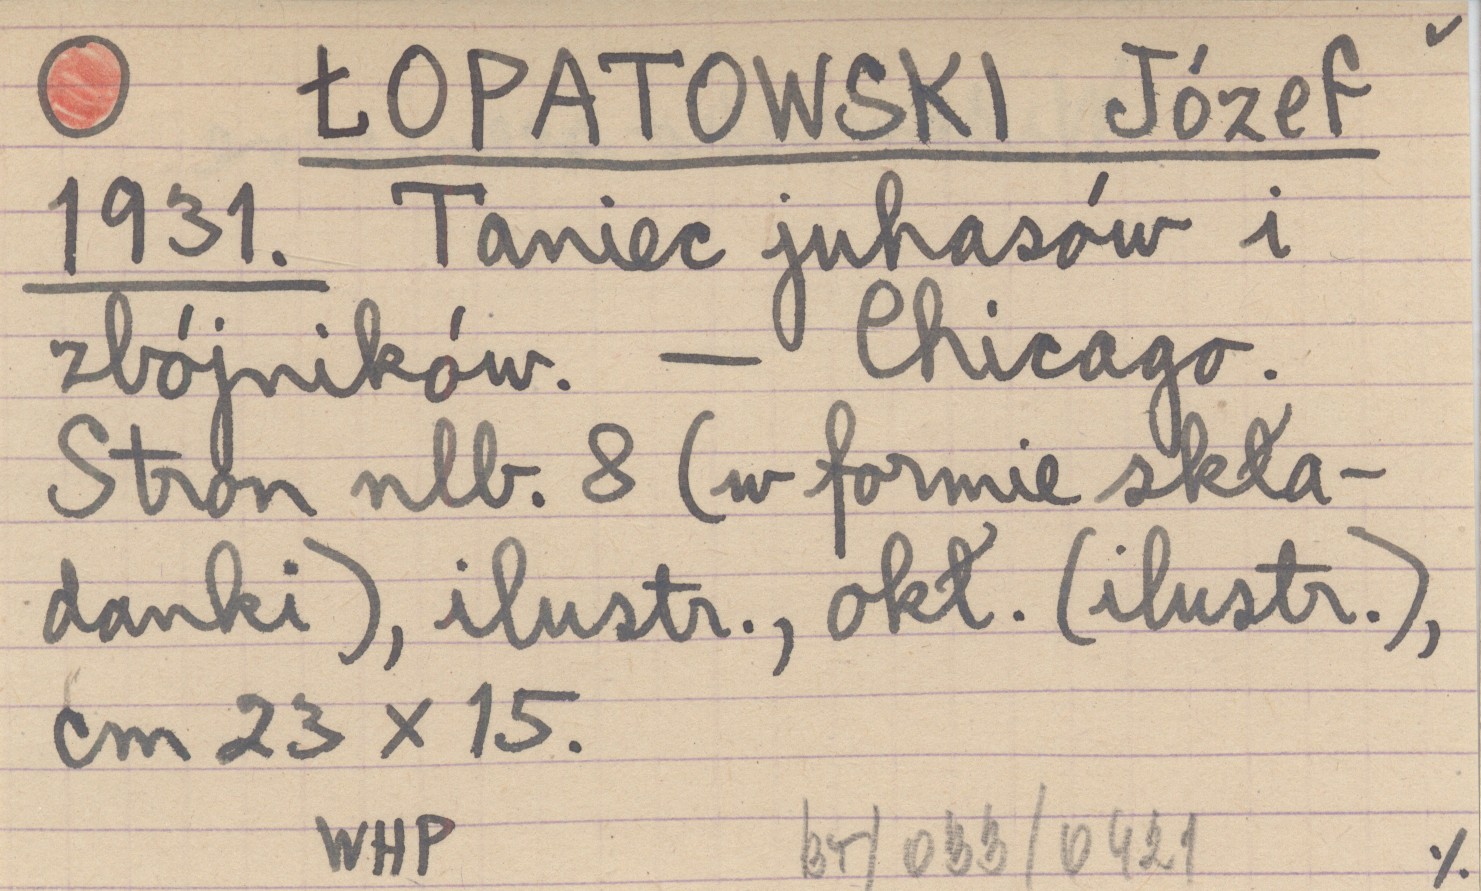 ŁOPATOWSKI Józef
1931. Taniec juhasów i
zbójników. — Chicago.
Stron nlb. 8 (w formie skła-
danki), ilustr., okł. (ilustr.),
cm 23 x 15.
WHP
./.